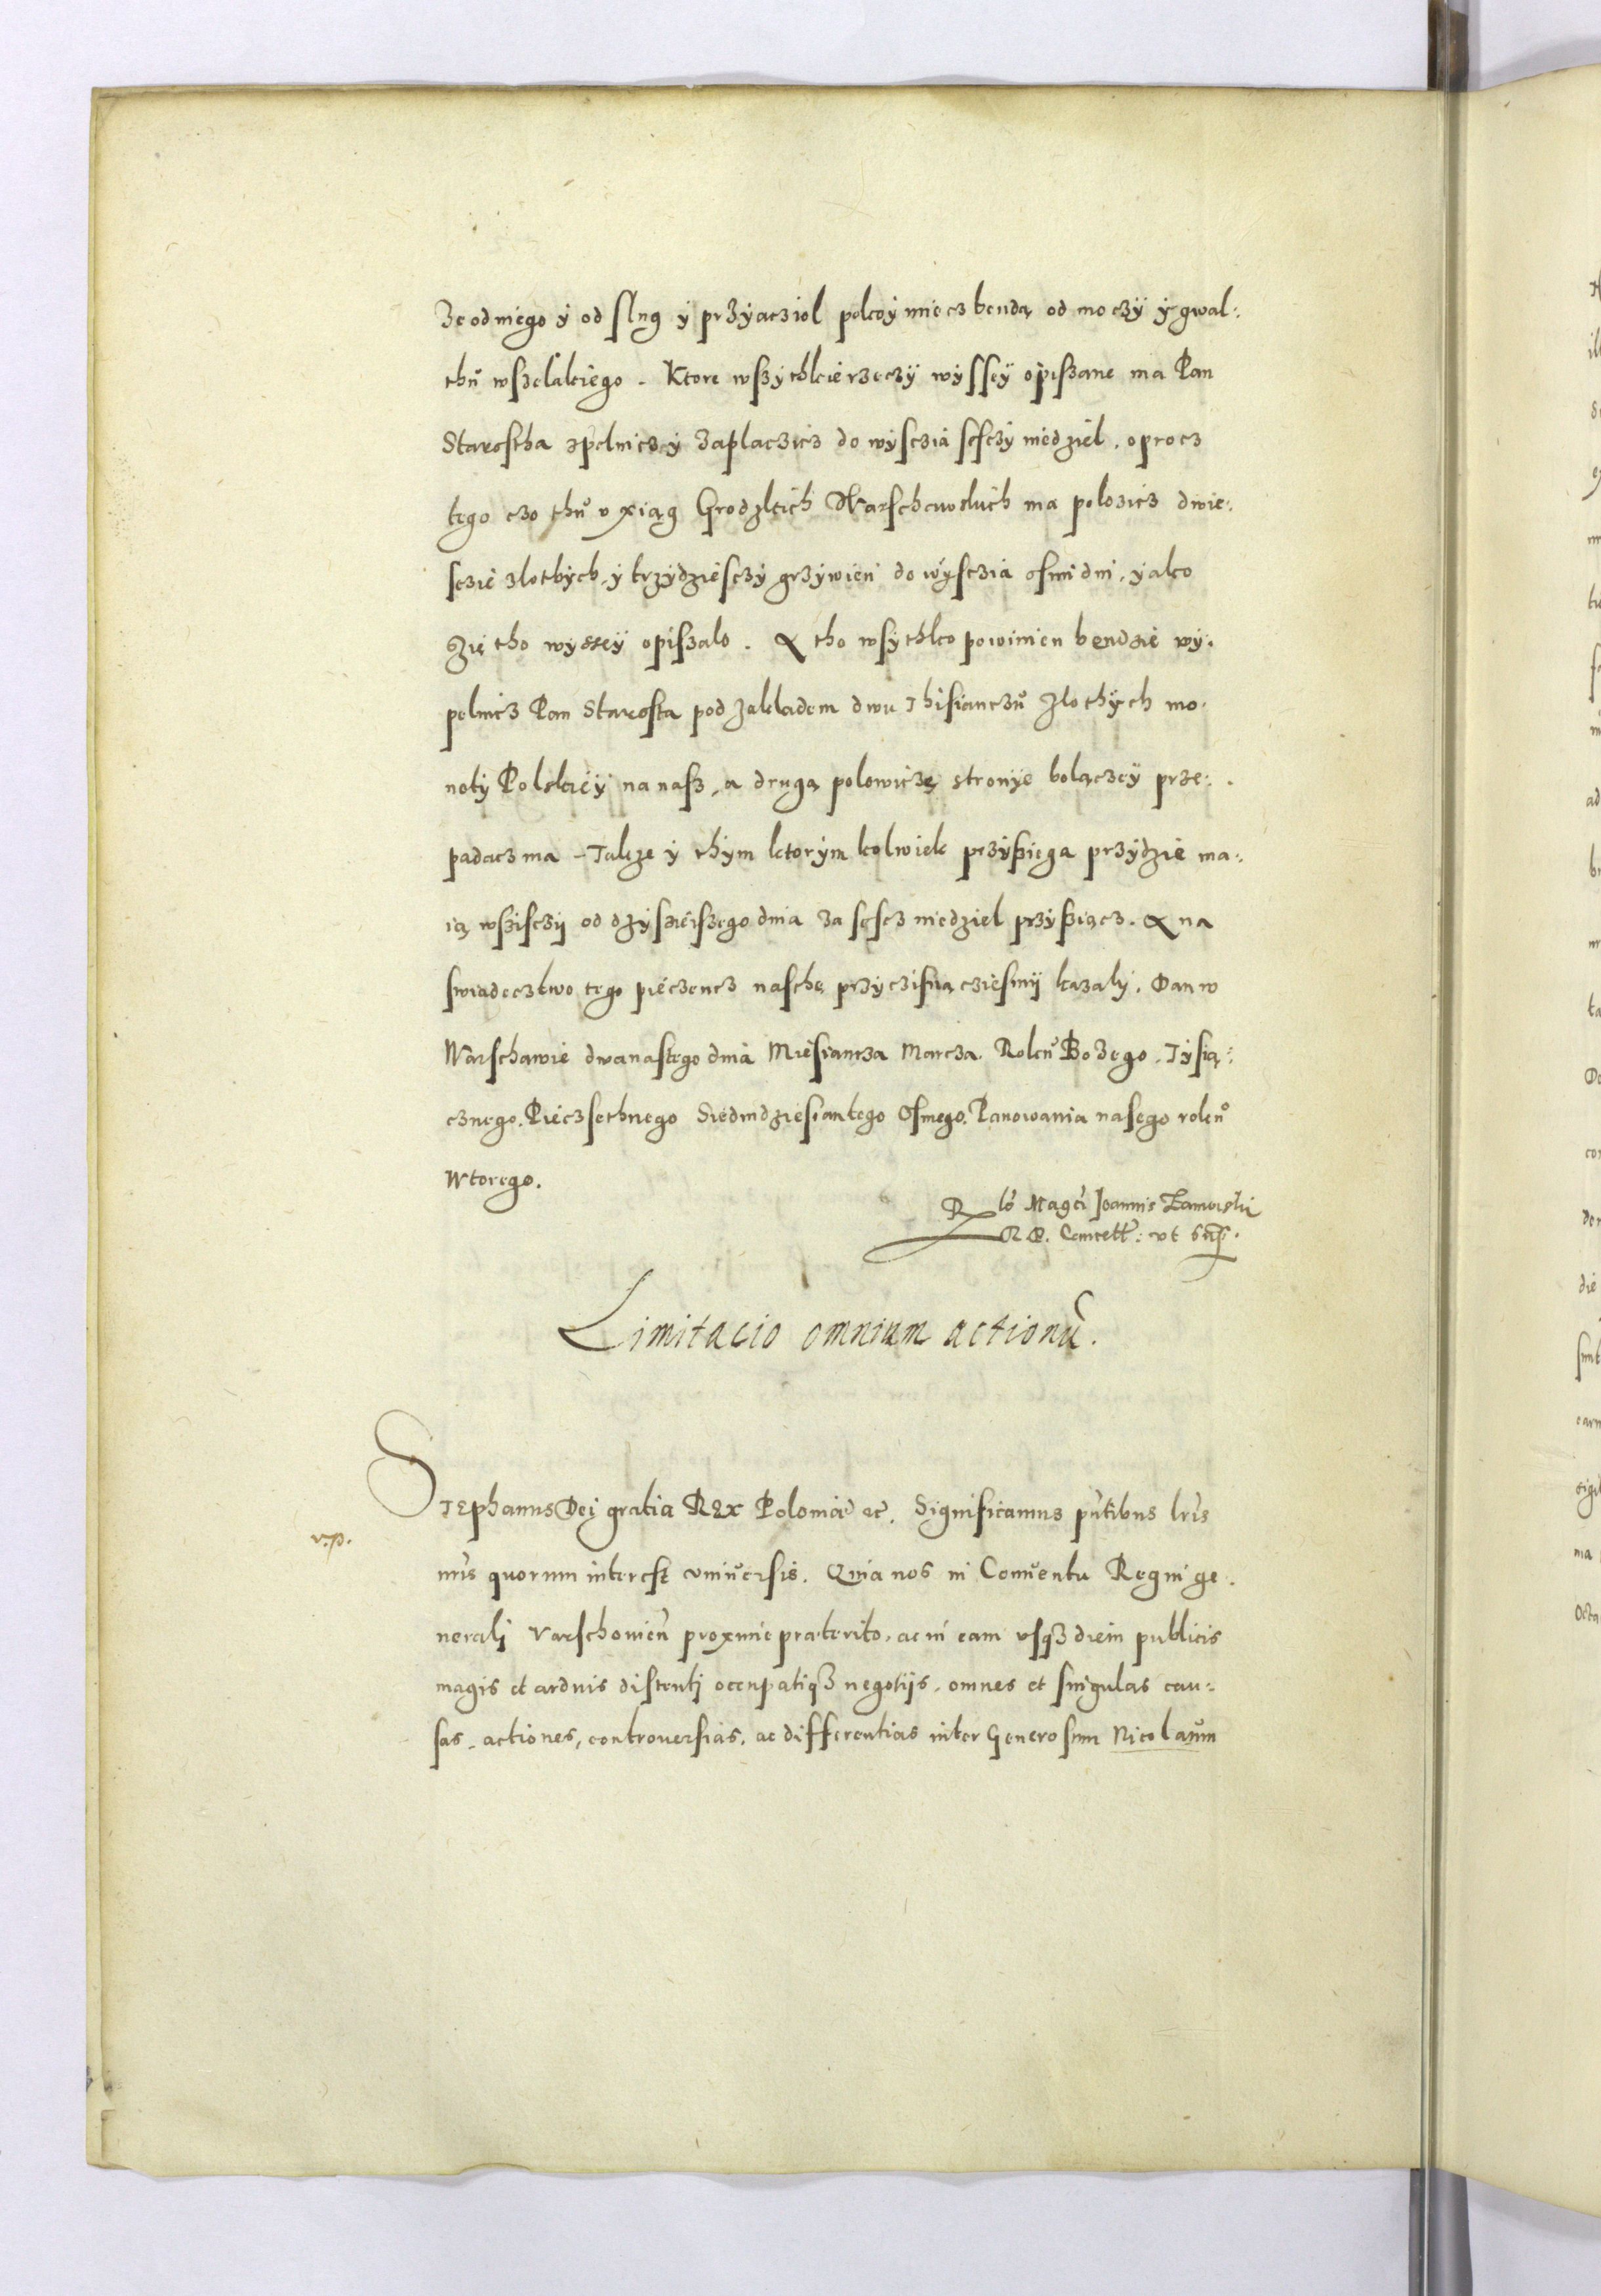 Ze od niego ÿ od slug ÿ przÿacziol pokoÿ miecz bendą od moczÿ ÿ gwal:
thŭ wszelakiego. Ktore wszÿthkie rzeczÿ wÿsseÿ opiszane ma Pan
Starostha zpelniczÿ zaplaczicz do wÿsczia sesczÿ niedziel, oprocz
tego czo thŭ v xiąg Grodzkich Warschewskich ma polozicz dwie:
sczie zlothÿch, ÿ trzÿdziesczÿ grzÿwien do wÿsczia osmi dni, ÿako
Zię tho wÿsseÿ opiszalo. A tho wsÿthko powinien bendzie wÿ:
pelnicz Pan Starosta pod zakladem dwu Thisianczŭ Zlothÿch mo:
notÿ Polskieÿ na nasz, a drugą polowiczę stronÿe bolączeÿ prze:
padacz ma. Takze ÿ thÿm ktorÿm kolwiek przÿsziega przÿdzie ma:
ią wszisczij od dzÿsieiszego dnia za sescz niedziel przÿsziącz. A na
swiadecztwo tego pieczencz naschę przÿczisnącziesmÿ kazalÿ. Dan w
Warschawie dwanastego dnia Miesiancza Marcza. Rokŭ Bozego. Tÿsią:
cznego. Pieczsethnego Siedmdziesiantego Osmego. Panowania nasego rokŭ
Wtorego.
Rlo Magci Joannis Zamoiski
R. P. Cancell: vt sup.
Limitacio omnium actionũ.
Stephanus Dei gratia Rex Poloniæ etc. Significamus pñtibus lris
v.p.
nris quorum interest vniŭersis. Quia nos in Conŭentu Regni ge:
nerali Varschovień proxime præterito, ac in eam vsq3 diem publicis
magis et arduis distenti occupatiq3 negotijs, omnes et singulas cau:
sas, actiones, controuersias, ac differentias inter Generosum Nicolaŭm